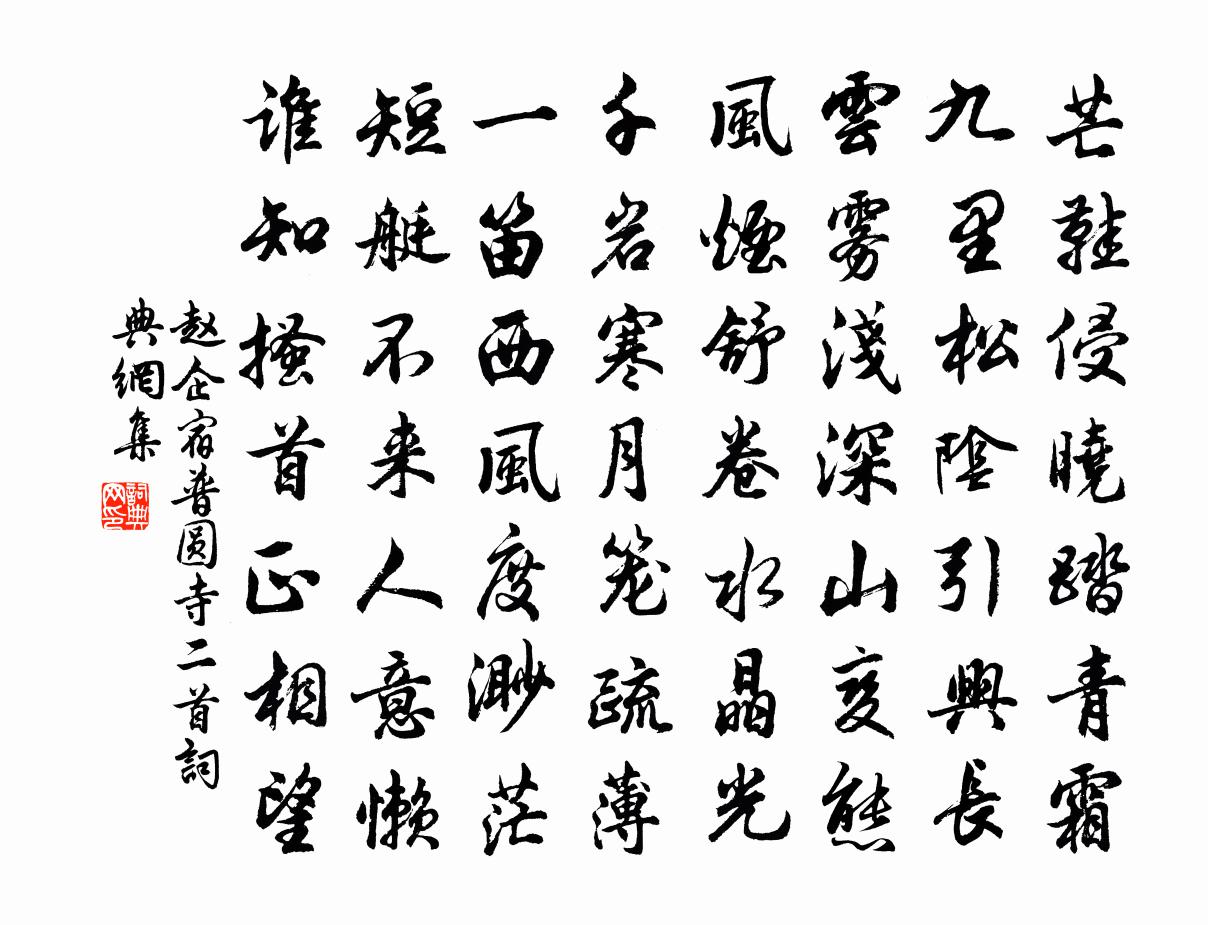 芒鞋侵曉踏青霜
九里松陰引興長
雲雾淺深山变態
風煙舒卷水晶光
千岩寒月笼疏薄
一笛西風度渺茫
短艇不来人意懒
谁知搔首正相望
赵企宿普圆寺二首詞
典網集
詞典网印